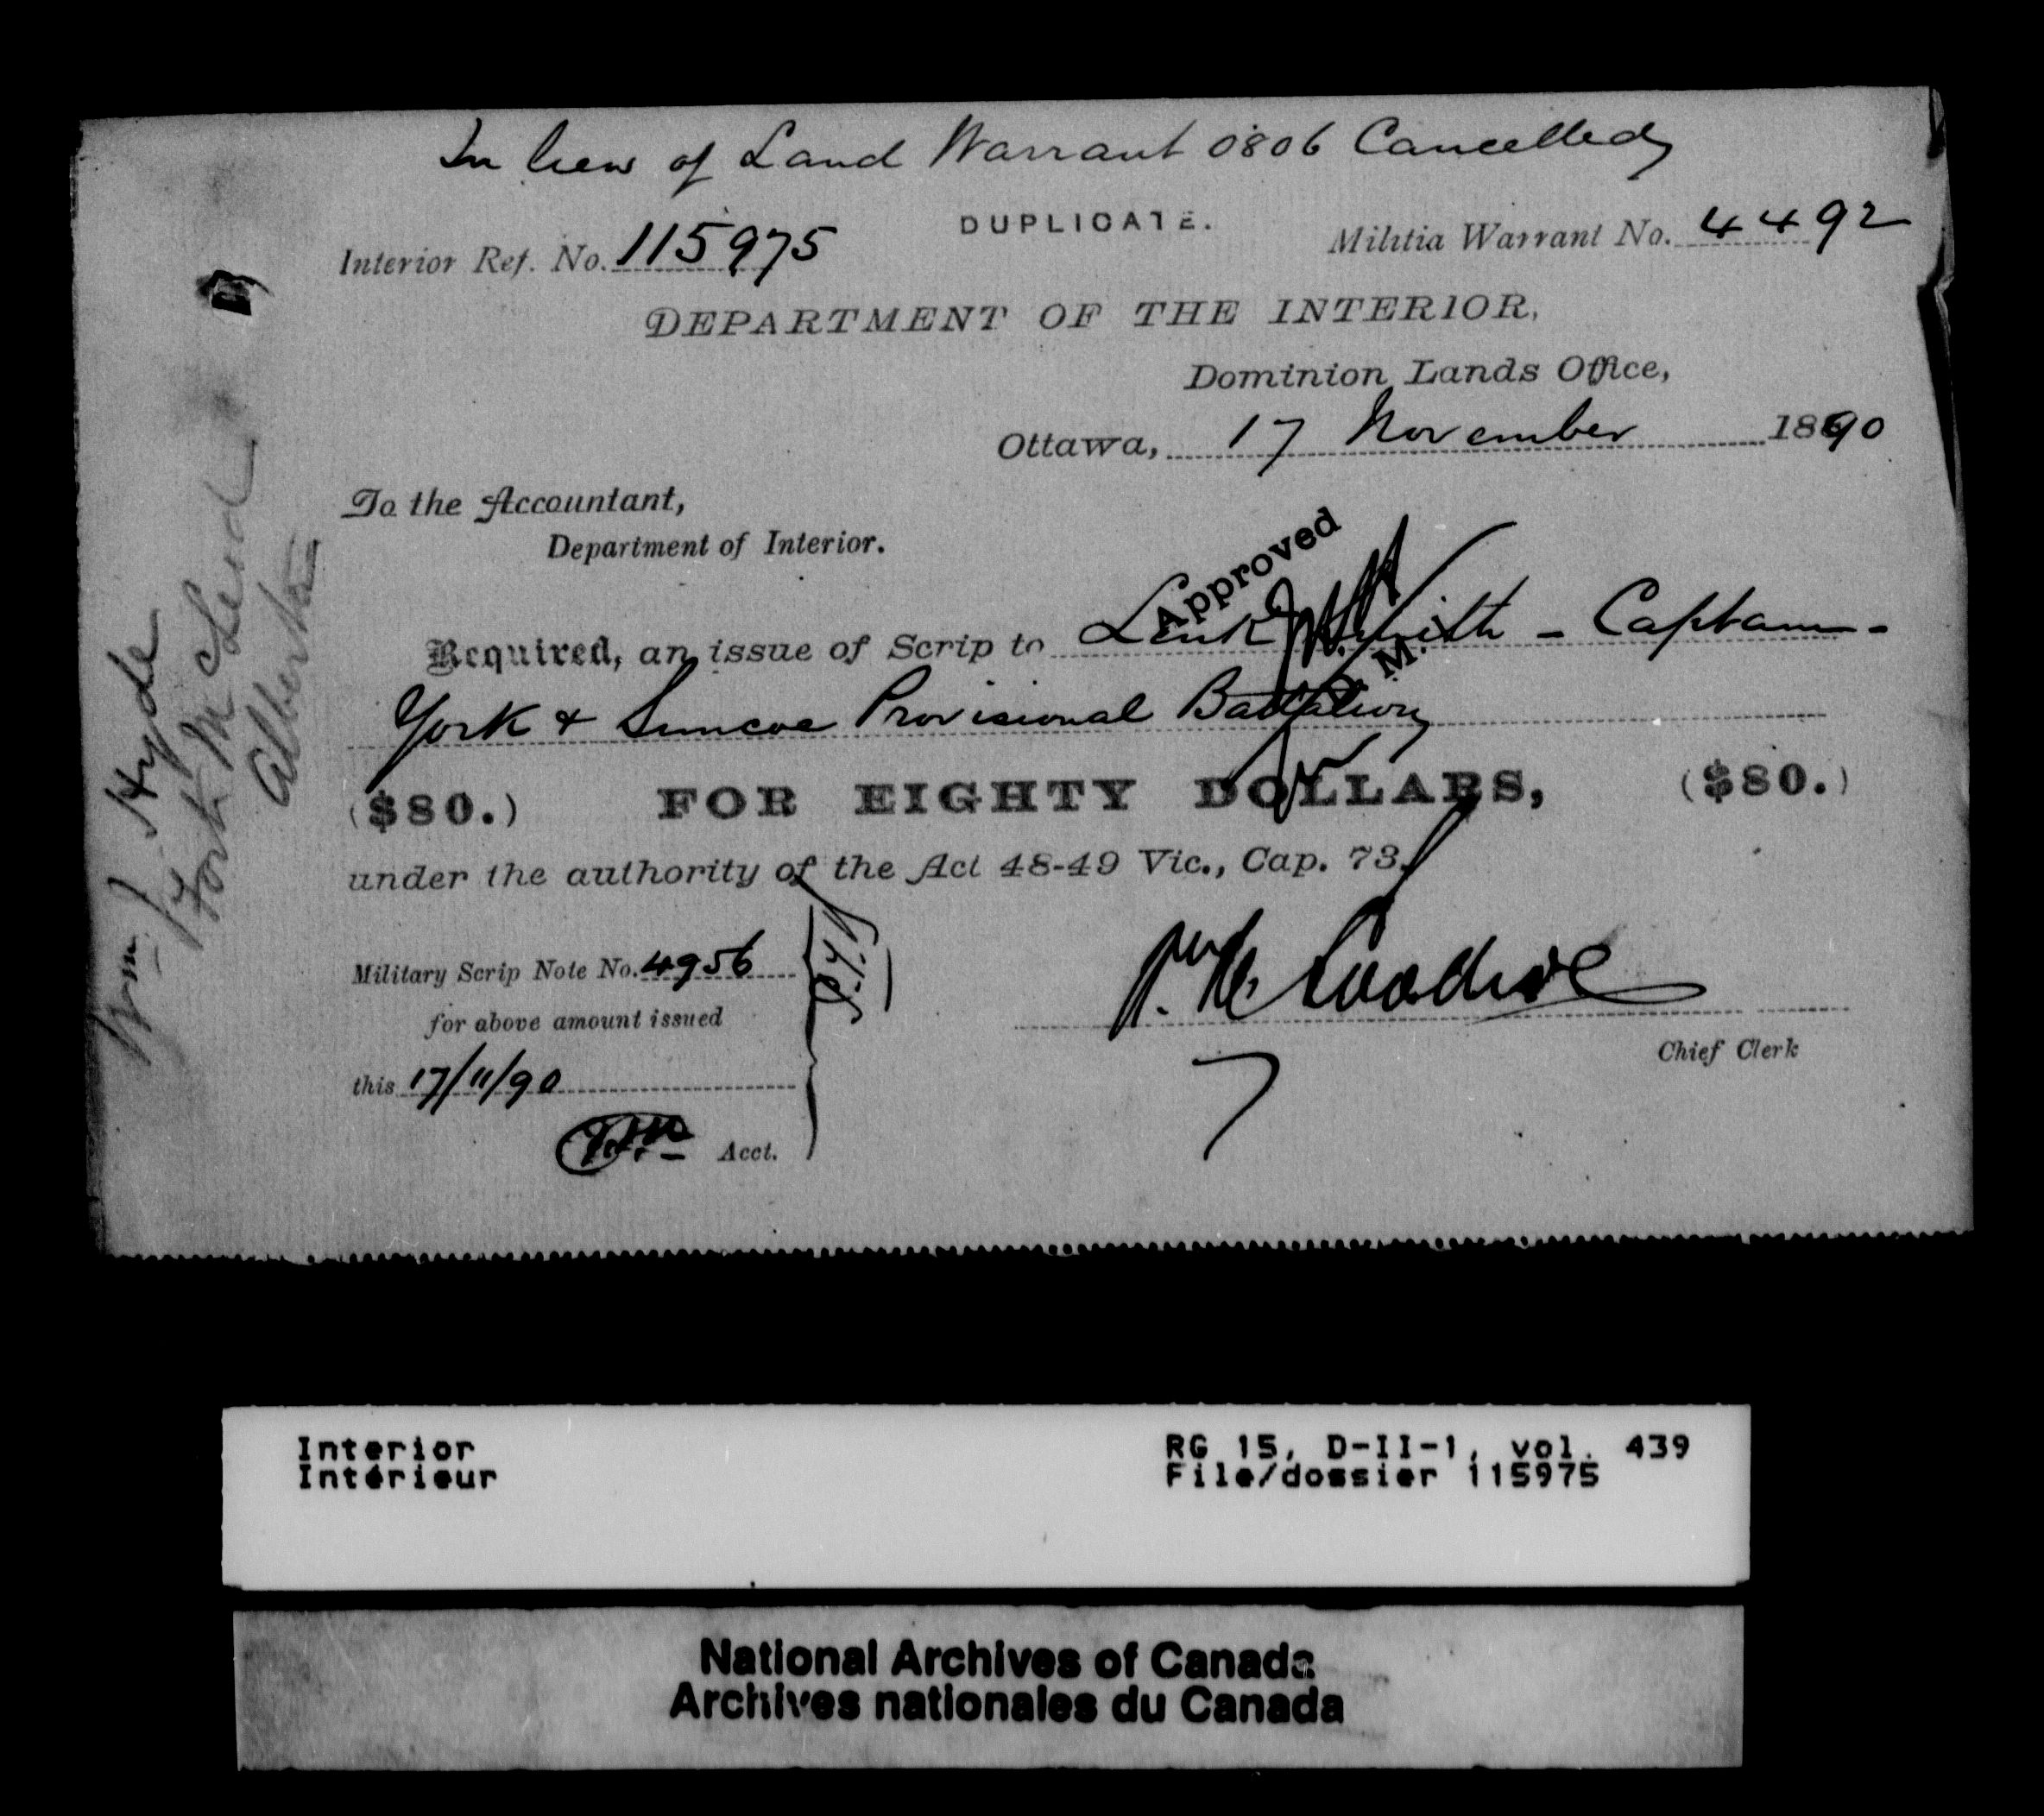 In lieu of Land Warrant 0806 Cancelled
DUPLICATE.
Interior Ref. No. 115975
Militia Warrant No. 4492
DEPARTMENT OF THE INTERIOR,
Dominion Lands Office,
Ottawa, 17 November 1890
To the Accountant,
Department of Interior.
Approved
Required, an issue of Scrip to Smith - Captain -
York & Simcoe Provisional Battalion
($80.) FOR EIGHTY DOLLARS, ($80.)
under the authority of the Act 48-49 Vic., Cap. 73.
Military Scrip Note No. 4956
for above amount issued
this 17/11/90
Acct.
Chief Clerk
Wm J. Hyde
Fort McLeod
Alberta
Interior
Intérieur
RG 15, D-II-1, vol. 439
File/dossier 115975
National Archives of Canada
Archives nationales du Canada